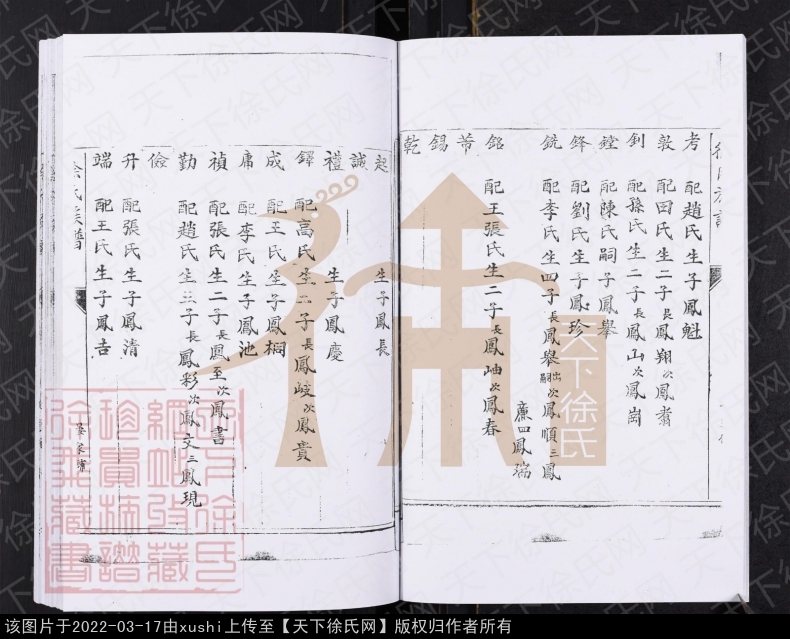 考 配趙氏生子鳳魁
敦 配田氏生二子長鳳翔次鳳翥
釗 配孫氏生二子長鳳山次鳳崗
鏜 配陳氏嗣子鳳舉
鋒 配劉氏生子鳳珍
銑 配李氏生四子長鳳舉出嗣次鳳順三鳳
廉四鳳瑞
銘 配王張氏生二子長鳳岫次鳳春
錫
乾
起 生子鳳長
誠
禮 生子鳳慶
鐸 配高氏生二子長鳳岐次鳳貴
成 配王氏生子鳳桐
庸 配李氏生子鳳池
禎 配張氏生二子長鳳至次鳳書
勤 配趙氏生三子長鳳彩次鳳文三鳳現
儉
升 配張氏生子鳳清
端 配王氏生子鳳吉
徐氏族譜
天下徐氏
天下徐氏网
该图片于2022-03-17由xushi上传至【天下徐氏网】版权归作者所有